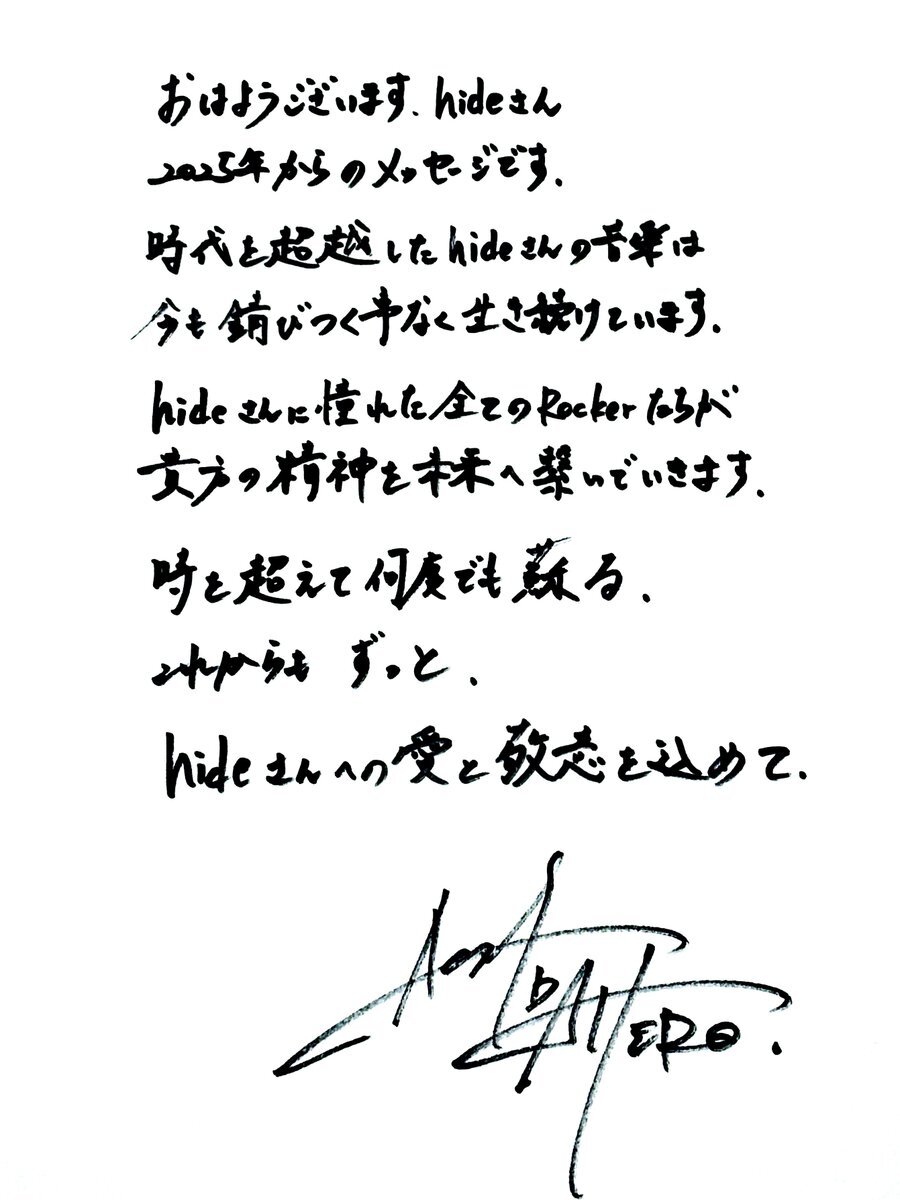 おはようございます.hideさん
2025年からのメッセージです.
時代を超越したhideさんの音楽は
今も錆びつく事なく生き続けています.
hideさんに憧れた全てのRockerたちが
貴方の精神を未来へ繋いでいきます.
時を超えて何度でも蘇る.
これからも ずっと.
hideさんへの愛と敬意を込めて.